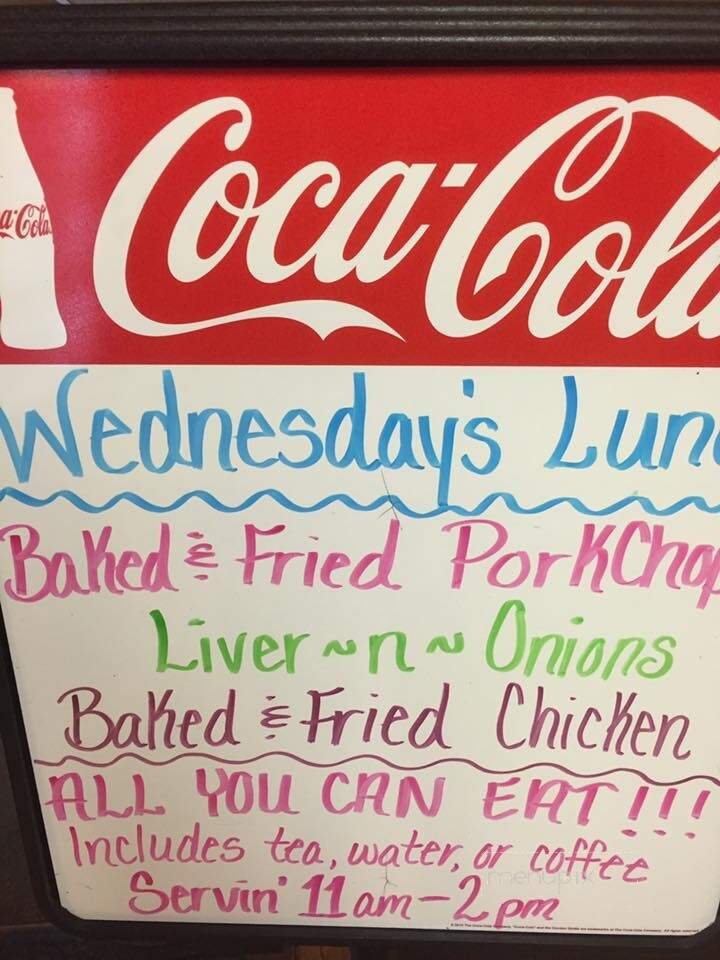 Coca-Cola
a-Cola
Wednesday's Lun
Baked & Fried PorkChop
Liver ~n~ Onions
Baked & Fried Chicken
ALL YOU CAN EAT!!!
Includes tea, water, or coffee
Servin' 11am-2pm
menupix